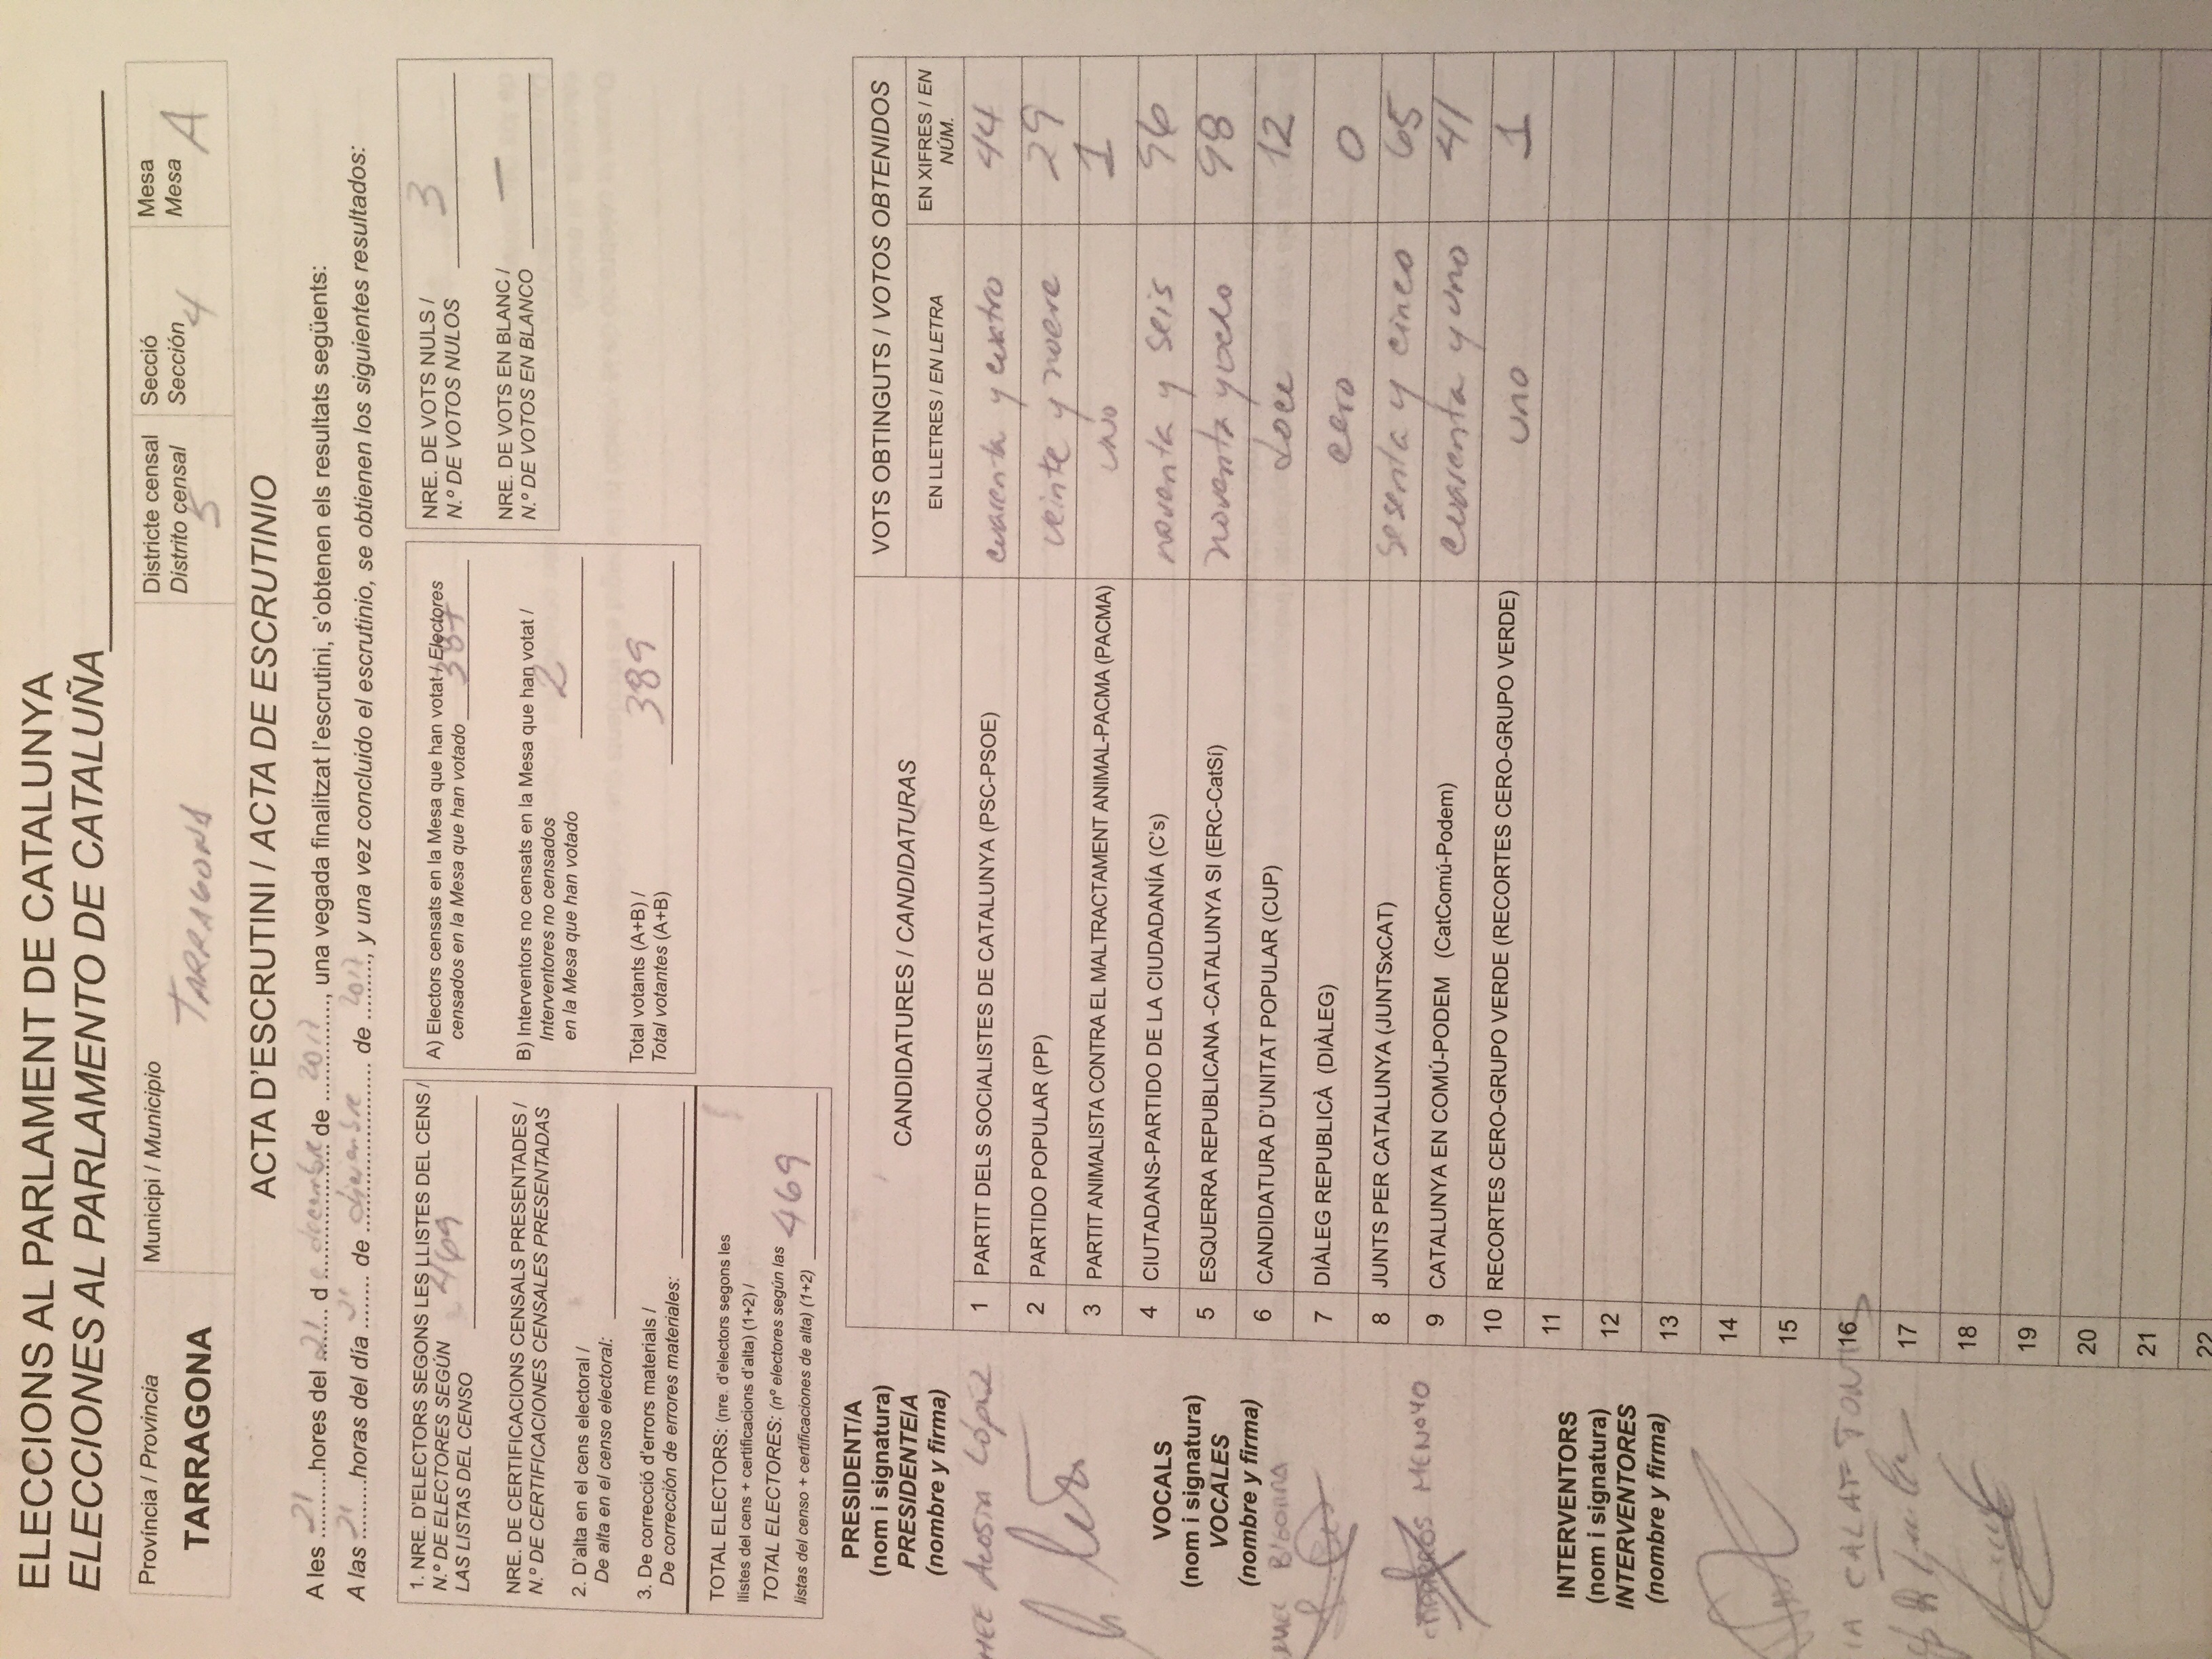 ELECCIONS AL PARLAMENT DE CATALUNYA
ELECCIONES AL PARLAMENTO DE CATALUÑA
Província / Provincia
TARRAGONA
Municipi / Municipio
TARRAGONA
Districte censal
Distrito censal
5
Secció
Sección
4
Mesa
Mesa
A
ACTA D'ESCRUTINI / ACTA DE ESCRUTINIO
A les 21 hores del 21 de decembre de 2017, una vegada finalitzat l'escrutini, s'obtenen els resultats següents:
A las 21 horas del día 21 de diciembre de 2017, y una vez concluido el escrutinio, se obtienen los siguientes resultados:
1. NRE. D'ELECTORS SEGONS LES LLISTES DEL CENS /
N.º DE ELECTORES SEGÚN
LAS LISTAS DEL CENSO 469
NRE. DE CERTIFICACIONS CENSALS PRESENTADES /
N.º DE CERTIFICACIONES CENSALES PRESENTADAS
2. D'alta en el cens electoral /
De alta en el censo electoral:
3. De correcció d'errors materials /
De corrección de errores materiales:
TOTAL ELECTORS: (nre. d'electors segons les
llistes del cens + certificacions d'alta) (1+2) /
TOTAL ELECTORES: (nº electores según las
listas del censo + certificaciones de alta) (1+2) 469
A) Electors censats en la Mesa que han votat / Electores
censados en la Mesa que han votado 387
B) Interventors no censats en la Mesa que han votat /
Interventores no censados
en la Mesa que han votado 2
Total votants (A+B) /
Total votantes (A+B) 389
NRE. DE VOTS NULS /
N.º DE VOTOS NULOS 3
NRE. DE VOTS EN BLANC /
N.º DE VOTOS EN BLANCO —
PRESIDENT/A
(nom i signatura)
PRESIDENTE/A
(nombre y firma)
Acosta López
VOCALS
(nom i signatura)
VOCALES
(nombre y firma)
BIGORRA
MENOYO
INTERVENTORS
(nom i signatura)
INTERVENTORES
(nombre y firma)
CALAF
CANDIDATURES / CANDIDATURAS
VOTS OBTINGUTS / VOTOS OBTENIDOS
EN LLETRES / EN LETRA
EN XIFRES / EN
NÚM.
1 PARTIT DELS SOCIALISTES DE CATALUNYA (PSC-PSOE) cuarenta y cuatro 44
2 PARTIDO POPULAR (PP) veinte y nueve 29
3 PARTIT ANIMALISTA CONTRA EL MALTRACTAMENT ANIMAL-PACMA (PACMA) uno 1
4 CIUTADANS-PARTIDO DE LA CIUDADANÍA (C's) noventa y seis 96
5 ESQUERRA REPUBLICANA -CATALUNYA SI (ERC-CatSí) noventa y ocho 98
6 CANDIDATURA D'UNITAT POPULAR (CUP) doce 12
7 DIÀLEG REPUBLICÀ (DIÀLEG) cero 0
8 JUNTS PER CATALUNYA (JUNTSxCAT) sesenta y cinco 65
9 CATALUNYA EN COMÚ-PODEM (CatComú-Podem) cuarenta y uno 41
10 RECORTES CERO-GRUPO VERDE (RECORTES CERO-GRUPO VERDE) uno 1
11
12
13
14
15
16
17
18
19
20
21
22